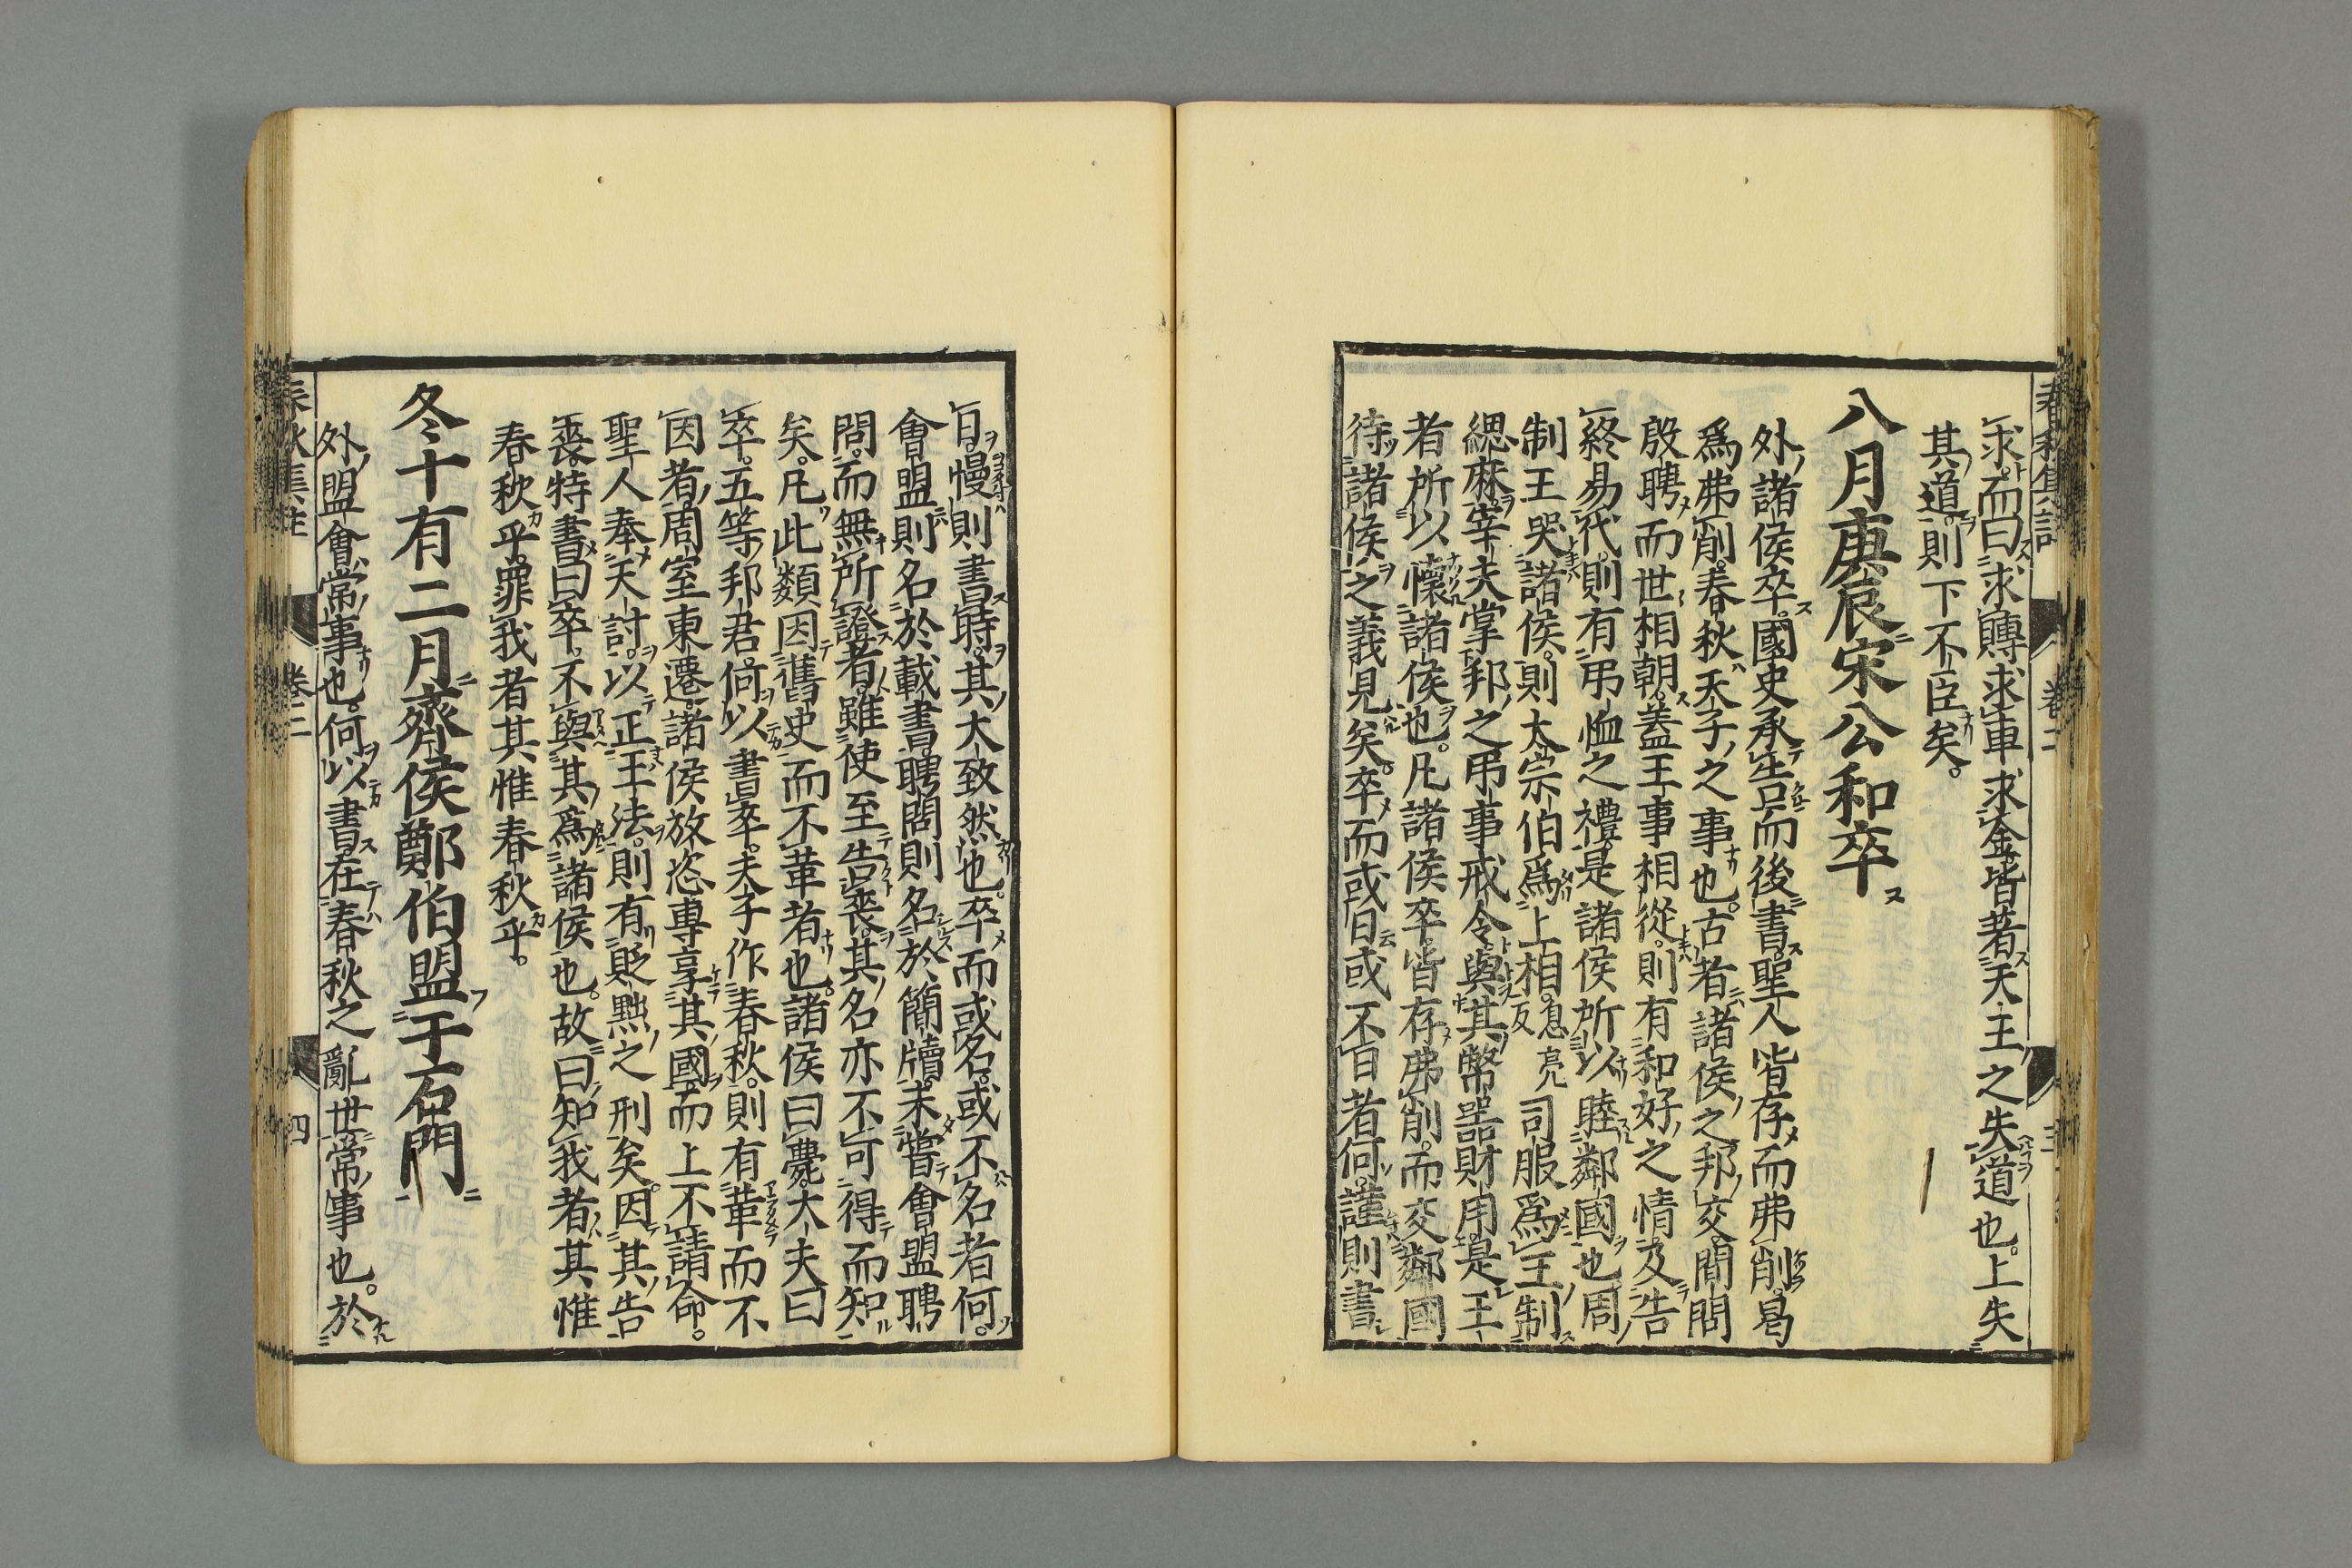 求而曰求賻求車求金皆著天王之失道也上失
其道則下不臣矣
八月庚辰宋公和卒
外諸侯卒國史承告而後書聖人皆存而弗削曷
爲弗削春秋天子之事也古者諸侯之邦交間問
殷聘而世相朝蓋王事相從則有和好之情及告
終易代則有弔恤之禮是諸侯所以睦鄰國也周
制王哭諸侯則大宗伯爲上相息亮反司服爲王制
緦麻宰夫掌邦之弔事戒令與其幣器財用是王
者所以懷諸侯也凡諸侯卒皆存弗削而交鄰國
待諸侯之義見矣卒而或日或不日者何謹則書
日慢則書時其大致然也卒而或名或不名者何
會盟則名於載書聘問則名於簡牘未嘗會盟聘
問而無所證者雖使至告喪其名亦不可得而知
矣凡此類因舊史而不革者也諸侯曰薨大夫曰
卒五等邦君何以書卒夫子作春秋則有革而不
因者周室東遷諸侯放恣專享其國而上不請命
聖人奉天討以正王法則有貶黜之刑矣因其告
喪特書曰卒不與其爲諸侯也故曰知我者其惟
春秋乎罪我者其惟春秋乎
冬十有二月齊侯鄭伯盟于石門
外盟會常事也何以書在春秋之亂世常事也於
春秋集註 卷二 四